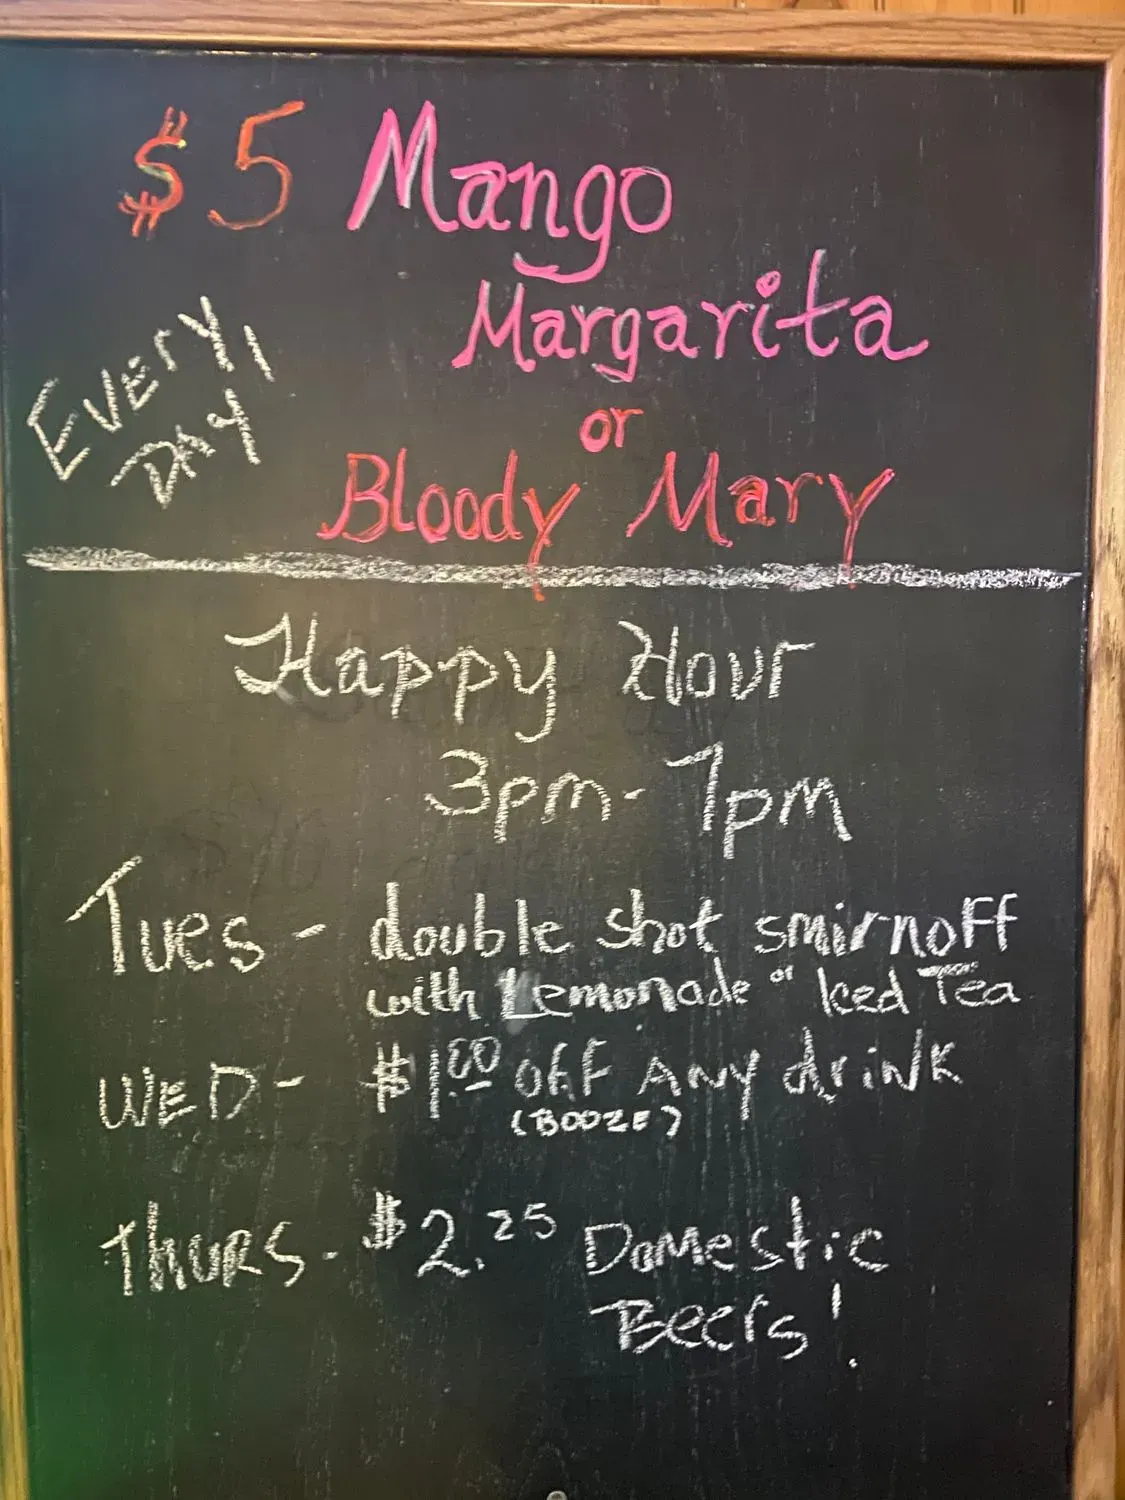 $5 Mango
Margarita
or
Bloody Mary
EVERY
DAY!
Happy Hour
3pm-7pm
Tues - double shot smirnoff
with Lemonade or Iced Tea
WED - $1.00 off ANY drink
(BOOZE)
thurs - $2.25 Domestic
Beers!